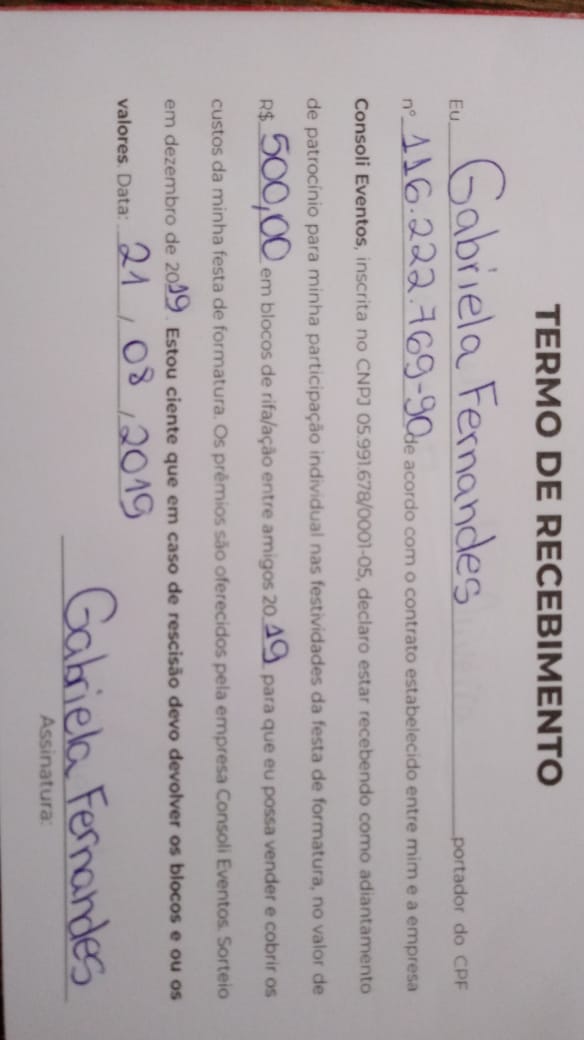 TERMO DE RECEBIMENTO
Eu Gabriela Fernandes portador do CPF
nº 116.222.769-90 de acordo com o contrato estabelecido entre mim e a empresa
Consoli Eventos, inscrita no CNPJ 05.991.678/0001-05, declaro estar recebendo como adiantamento
de patrocínio para minha participação individual nas festividades da festa de formatura, no valor de
R$ 500,00 em blocos de rifa/ação entre amigos 2019 para que eu possa vender e cobrir os
custos da minha festa de formatura. Os prêmios são oferecidos pela empresa Consoli Eventos. Sorteio
em dezembro de 2019. Estou ciente que em caso de rescisão devo devolver os blocos e ou os
valores. Data: 21 / 08 / 2019
Gabriela Fernandes
Assinatura: